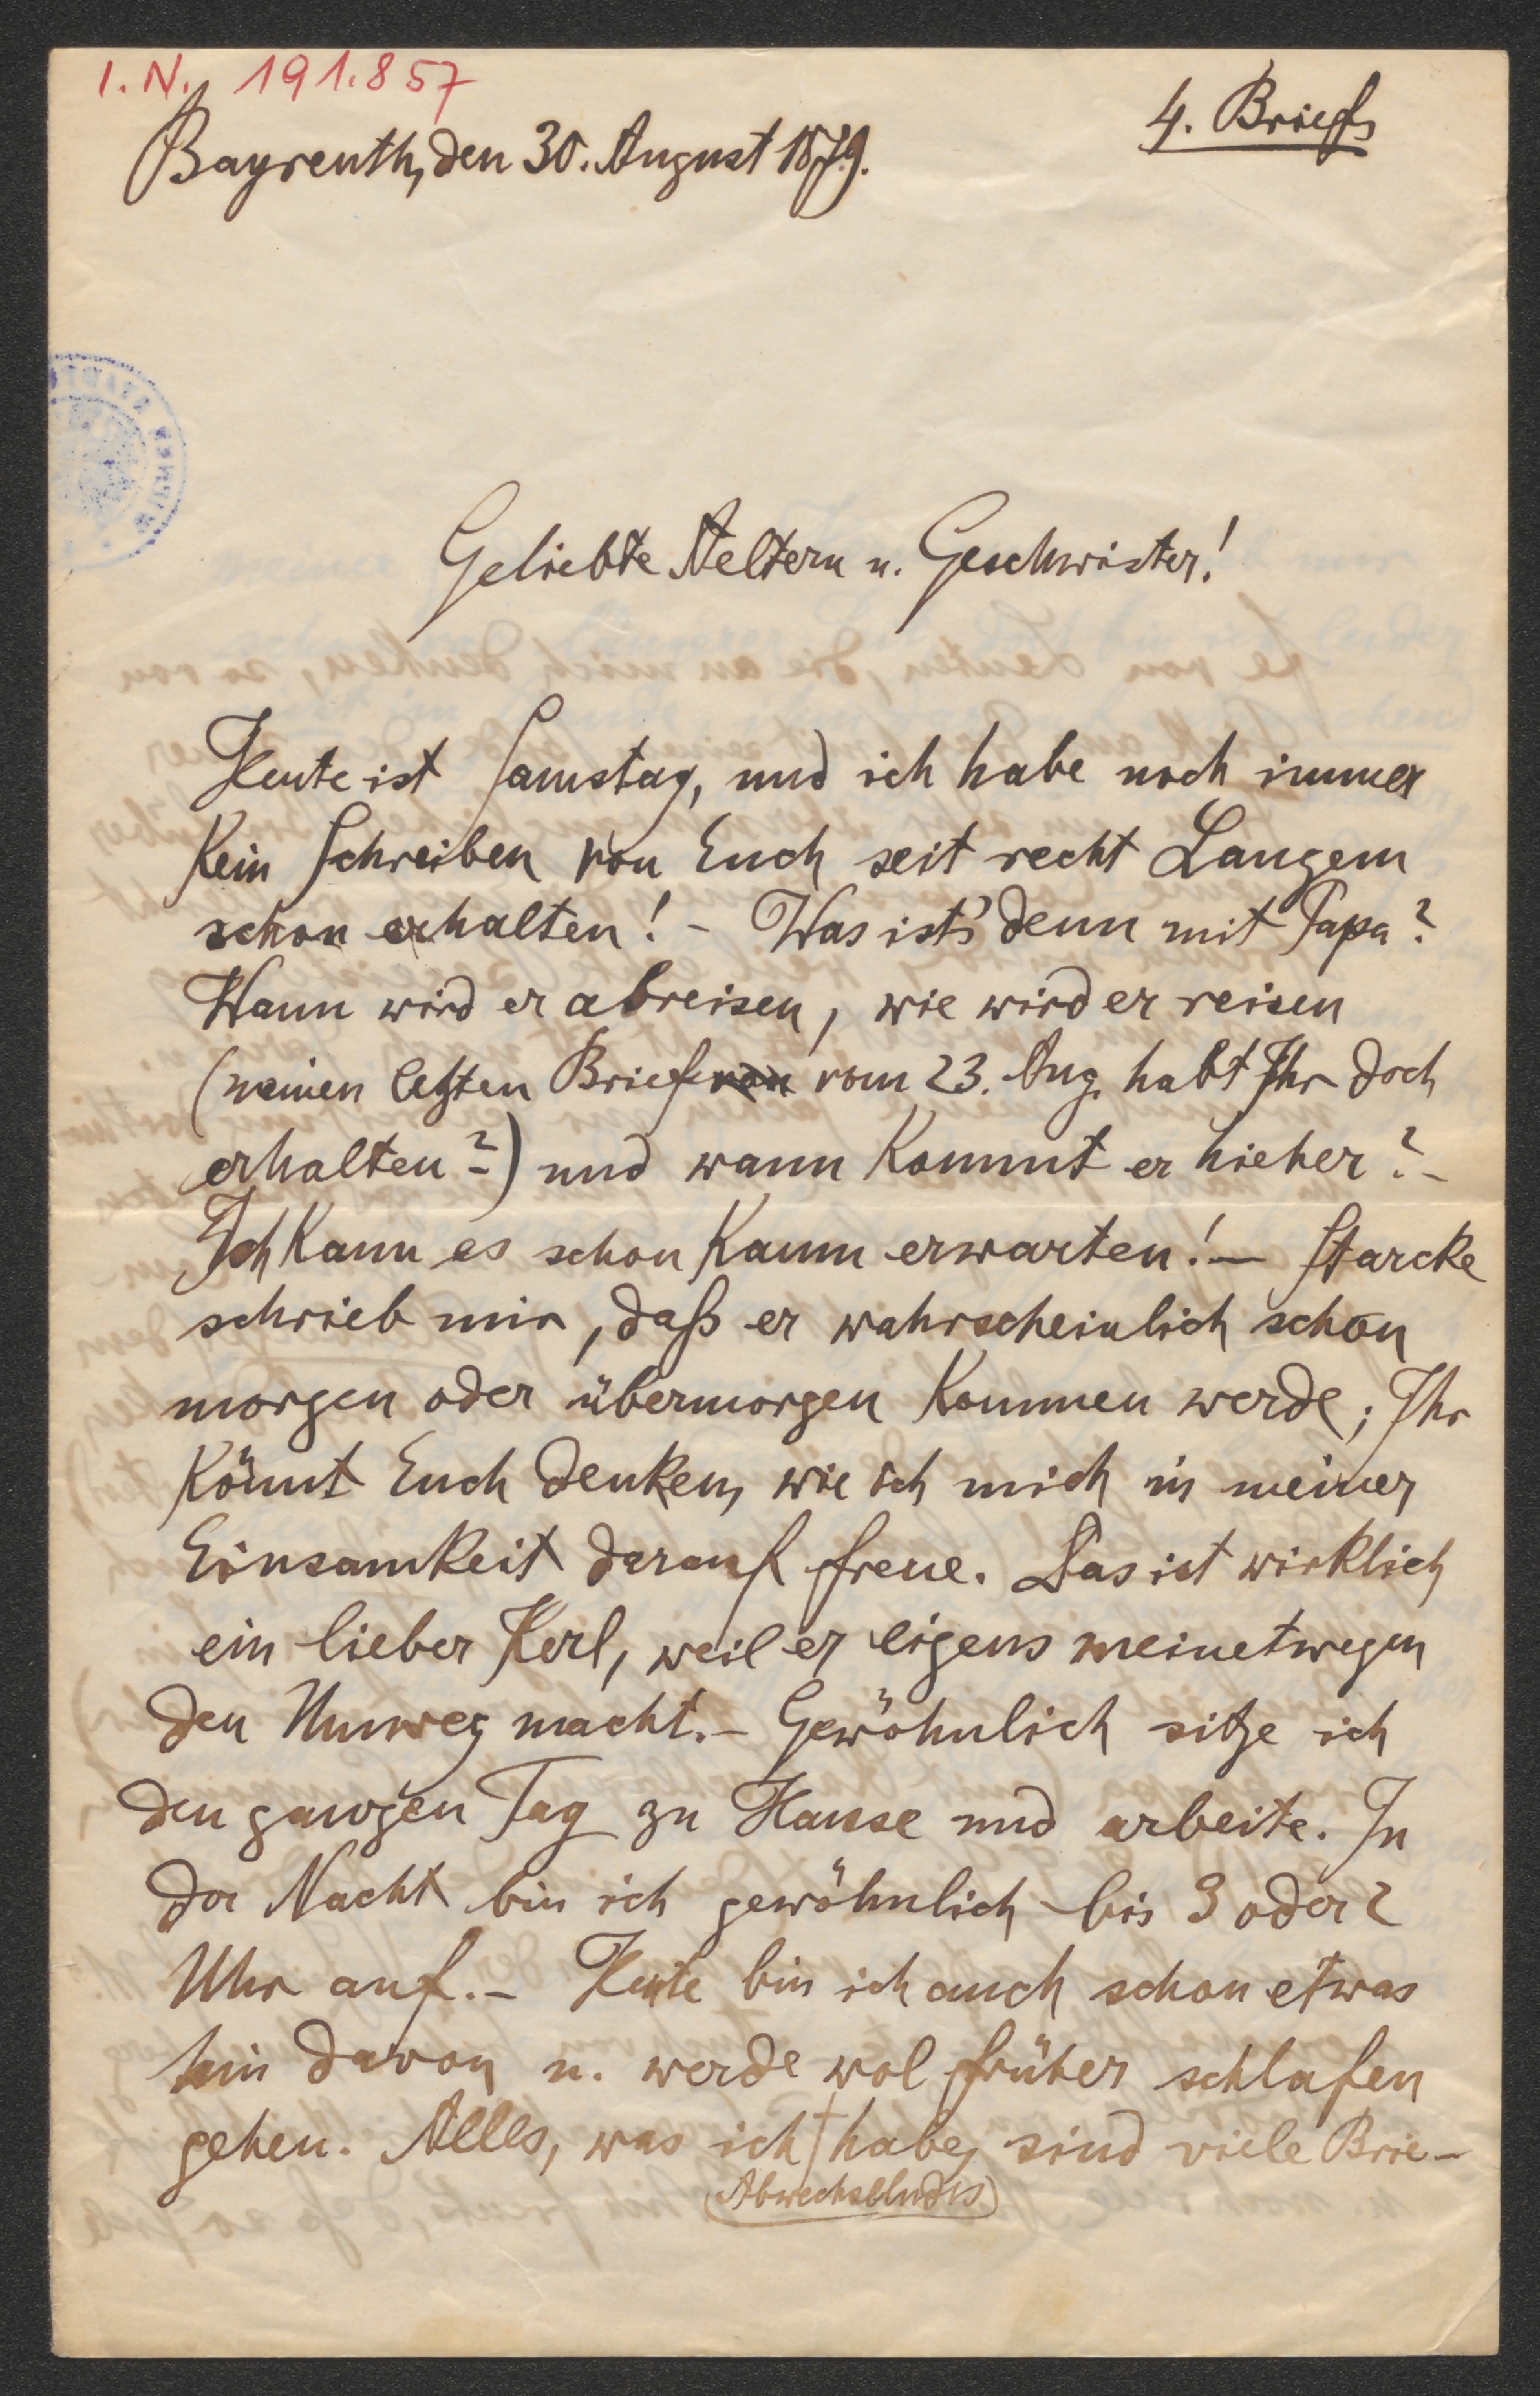 I.N. 191.857
4. Brief
Bayreuth, den 30. August 1879.
Geliebte Aeltern u. Geschwister!
Heute ist Samstag, und ich habe noch immer
kein Schreiben von Euch seit recht Langem
schon erhalten! – Was ist's denn mit Papa?
Wann wird er abreisen, wie wird er reisen
(meinen letzten Brief von vom 23. Aug. habt Ihr doch
erhalten? –) und wann kommt er hieher? –
Ich kann es schon kaum erwarten! – Starcke
schrieb mir, daß er wahrscheinlich schon
morgen oder übermorgen kommen werde; Ihr
könnt Euch denken, wie ich mich in meiner
Einsamkeit darauf freue. Das ist wirklich
ein lieber Kerl, weil er eigens meinetwegen
den Umweg macht. – Gewöhnlich sitze ich
den ganzen Tag zu Hause und arbeite. In
der Nacht bin ich gewöhnlich bis 3 oder 2
Uhr auf. – Heute bin ich auch schon etwas
hin davon u. werde wol früher schlafen
gehen. Alles, was ich habe, sind viele Brie-
Abwechselndes